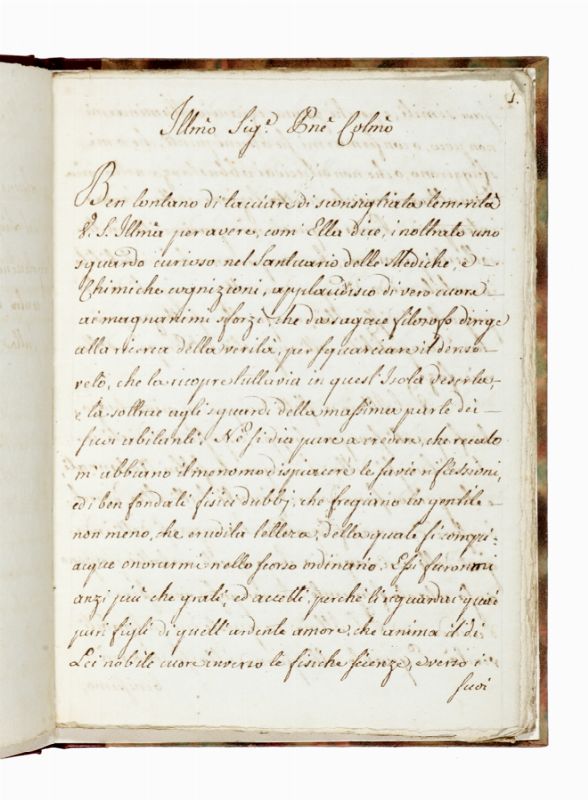 1.
Illmo Sigr. Pne Colmo
Ben lontano di tacciare di sconsigliata temerità
V. S. Illma per avere, com Ella dice, inoltrato uno
sguardo curioso nel Santuario delle Mediche, e
Chimiche cognizioni, applaudisco di vero cuore
ai magnanimi sforzi, che da sagace filosofo dirige
alla ricerca della verità, per squarciare il denso
velo, che la ricopre tuttavia in quest'Isola deserta,
e la sottrae agli sguardi della massima parte dei
suoi abitanti. Ne si dia pure a credere, che recato
m'abbiano il menomo dispiacere le savie riflessioni,
ed i ben fondati fisici dubbj, che fregiano la gentile
non meno, che erudita lettera, della quale si compi-
acque onorarmi nello scorso ordinario. Essi furonmi
anzi più che grati, ed accetti, perchè li riguardai quai
puri figli di quell'ardente amore, che anima il di
Lei nobile cuore inverso le fisiche scienze, e verso i
suoi